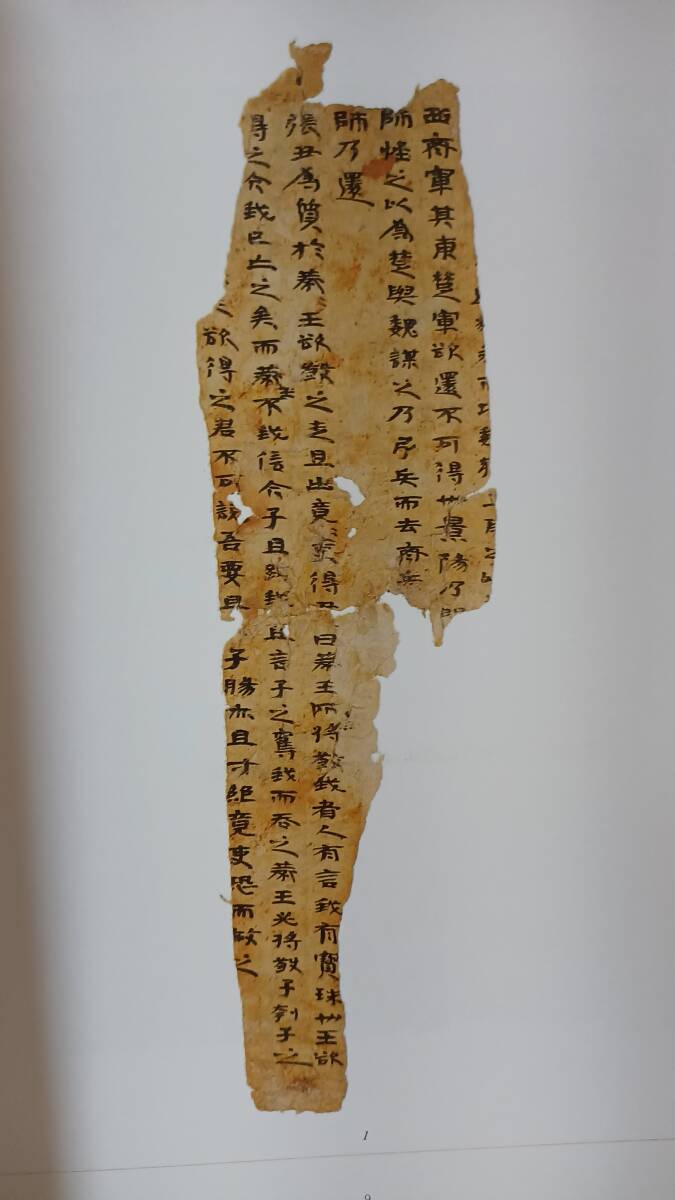 而攻魏軍
西齊軍其東楚軍欲還不可得也景陽乃開
師怪之以為楚與魏謀之乃引兵而去齊兵
師乃還
張丑為質於燕〻王欲殺之走且出竟〻吏得丑〻曰燕王所將殺我者人有言我有寶珠也王欲
得之今我已亡之矣而燕王不我信今子且致我〻且言子之奪我而吞之燕王必將殺子刳子之
欲得之君不可說吾要且 子腸亦且寸絕竟吏恐而赦之
1
9